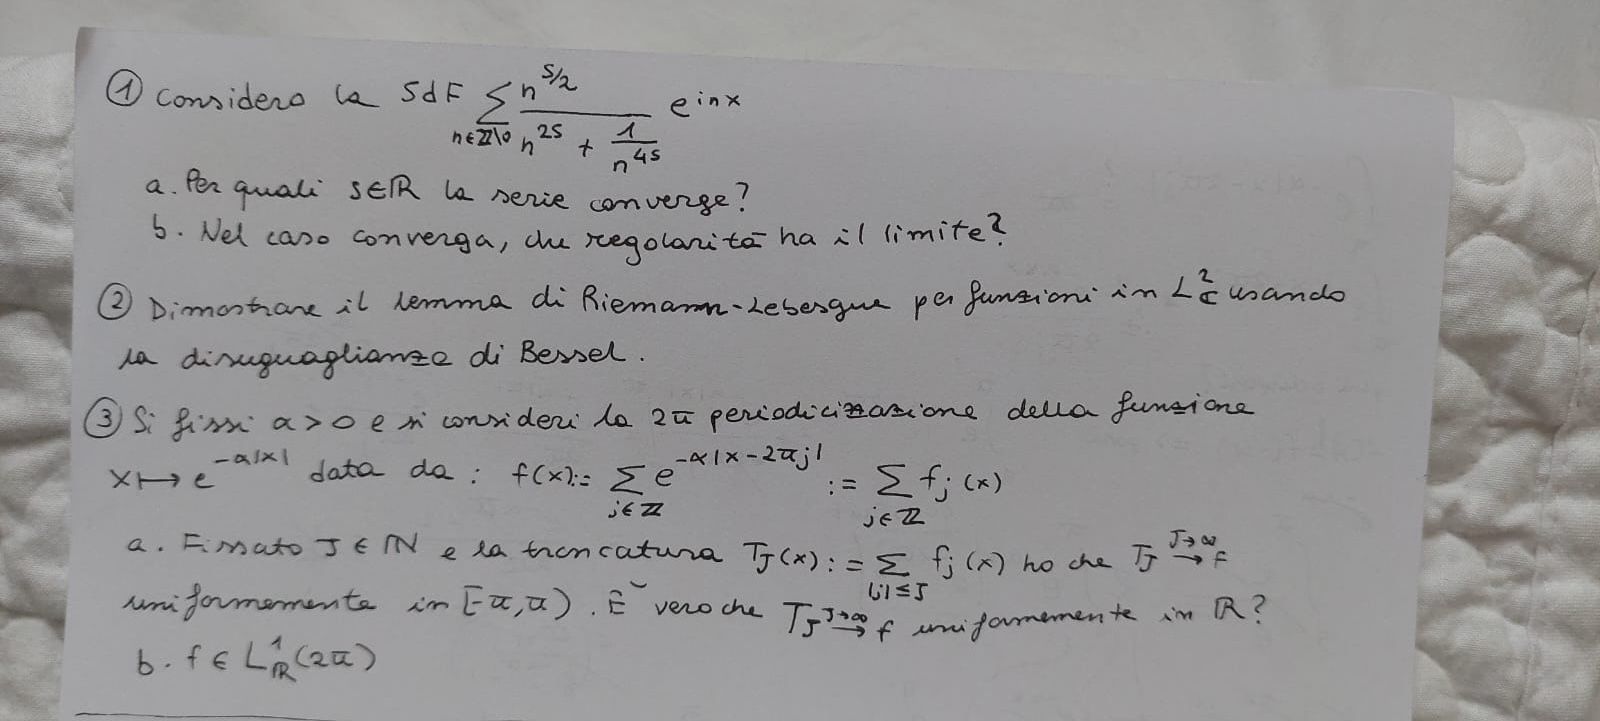 ① Considero la SdF ∑_{n∈ℤ\0} n^{s/2} / (n^{2s} + 1/n^{4s}) e^{inx}
a. Per quali s∈ℝ la serie converge?
b. Nel caso converga, che regolarità ha il limite?
② Dimostrare il lemma di Riemann-Lebesgue per funzioni in L²_ℂ usando
la disuguaglianza di Bessel.
③ Si fissi α>0 e si consideri la 2π periodicizzazione della funzione
x↦e^{-α|x|} data da: f(x):= ∑_{j∈ℤ} e^{-α|x-2πj|} := ∑_{j∈ℤ} f_j(x)
a. Fissato J∈ℕ e la troncatura T_J(x):= ∑_{|j|≤J} f_j(x) ho che T_J →^{J→∞} f
uniformemente in [-π,π). È vero che T_J →^{J→∞} f uniformemente in ℝ?
b. f ∈ L¹_ℝ(2π)